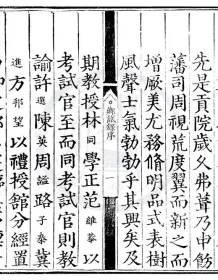 先是貢院歲久弗葺乃申飭
藩司周視荒度翼而新之而
增厥美尤務脩明品式表樹
風聲士氣勃勃乎其興矣及
期教授林同學正范雒黎以
考試官至而同考試官則教
諭許選陳英周謐路子泰葉
進方祁望以禮授館分經置